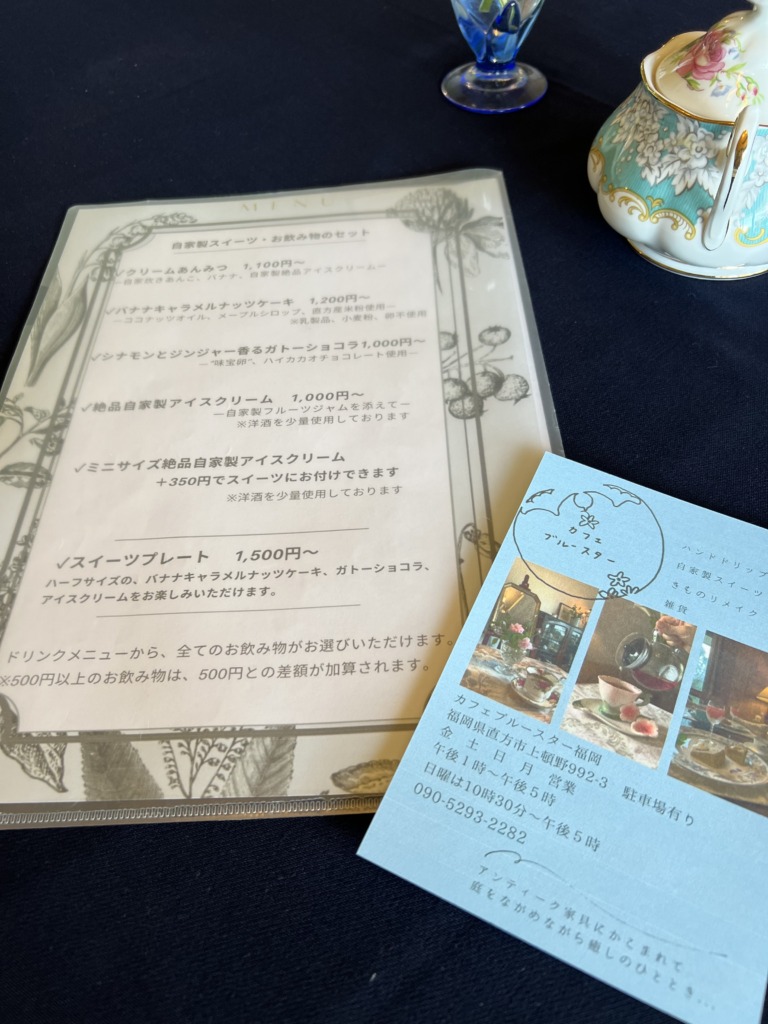 MENU
自家製スイーツ・お飲み物のセット
✓クリームあんみつ 1,100円〜
ー自家炊きあんこ、バナナ、自家製絶品アイスクリームー
✓バナナキャラメルナッツケーキ 1,200円〜
ーココナッツオイル、メープルシロップ、直方産米粉使用ー
※乳製品、小麦粉、卵不使用
✓シナモンとジンジャー香るガトーショコラ1,000円〜
ー"味宝卵"、ハイカカオチョコレート使用ー
✓絶品自家製アイスクリーム 1,000円〜
ー自家製フルーツジャムを添えてー
※洋酒を少量使用しております
✓ミニサイズ絶品自家製アイスクリーム
+350円でスイーツにお付けできます
※洋酒を少量使用しております
✓スイーツプレート 1,500円〜
ハーフサイズの、バナナキャラメルナッツケーキ、ガトーショコラ、
アイスクリームをお楽しみいただけます。
ドリンクメニューから、全てのお飲み物がお選びいただけます。
※500円以上のお飲み物は、500円との差額が加算されます。
カフェ
ブルースター
ハンドドリップ
自家製スイーツ
きものリメイク
雑貨
カフェブルースター福岡
福岡県直方市上頓野992-3 駐車場有り
金 土 日 月 営業
午後1時〜午後5時
日曜は10時30分〜午後5時
090-5293-2282
アンティーク家具にかこまれて
庭をながめながら癒しのひととき...